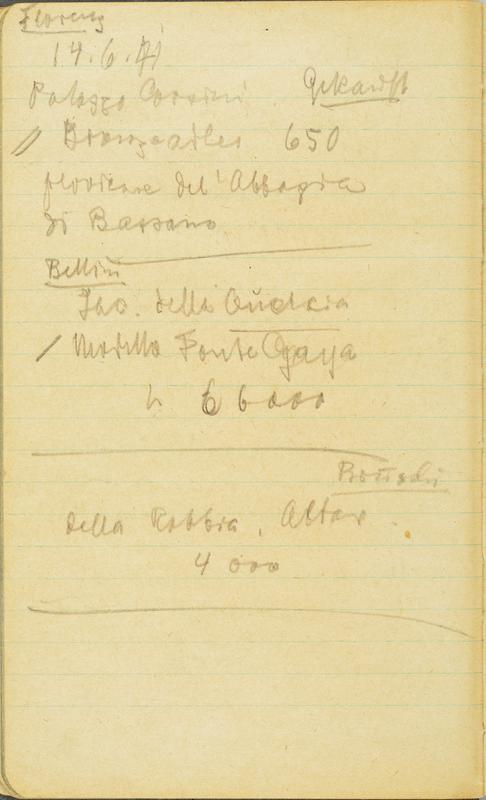 Florenz
14.6.41
Palazzo Corsini Gekauft
// Bronzeadler 650
del' Abbazia
di Bassano
Bellini
Jac. della Quercia
/ Modello Fonte Gaya
6000
della Robbia, Altar.
4 000